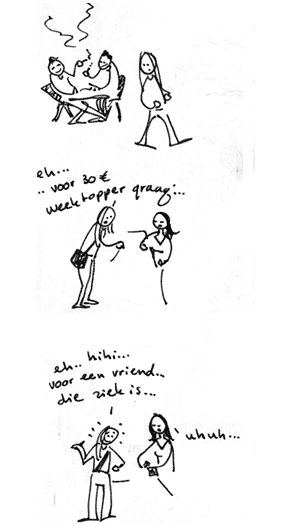 eh...
.. voor 30 €
weektopper graag...
eh.. hihi...
voor een vriend..
die ziek is...
uhuh...